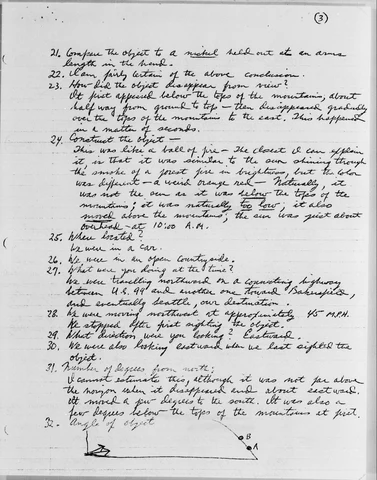 (3)
21. Compare the object to a nickel held out at an arms
length in the hand.
22. I am fairly certain of the above conclusion.
23. How did the object disappear from view?
It first appeared below the tops of the mountains, about
half way from ground to top — then disappeared gradually
over the tops of the mountains to the east. This happened
in a matter of seconds.
24. Construct the object —
This was like a ball of fire — The closest I can explain
it is that it was similar to the sun shining through
the smoke of a forest fire in brightness, but the color
was different — a weird orange red — Naturally, it
was not the sun as it was below the tops of the
mountains; it was naturally too low; it also
moved above the mountains; the sun was just about
overhead — at 10:00 A.M.
25. Where located?
We were in a car.
26. We were in an open countryside.
27. What were you doing at the time?
We were travelling northward on a connecting highway
between U.S. 99 and another one toward Bakersfield,
and eventually Seattle, our destination.
28. We were moving northwest at approximately 45 M.P.H.
We stopped after first sighting the object.
29. What direction were you looking? Eastward.
30. We were also looking eastward when we last sighted the
object.
31. Number of degrees from north:
I cannot estimate this, although it was not far above
the horizon when it disappeared and about eastward.
It moved a few degrees to the south. It was also a
few degrees below the tops of the mountains at first.
32. Angle of object
B
A